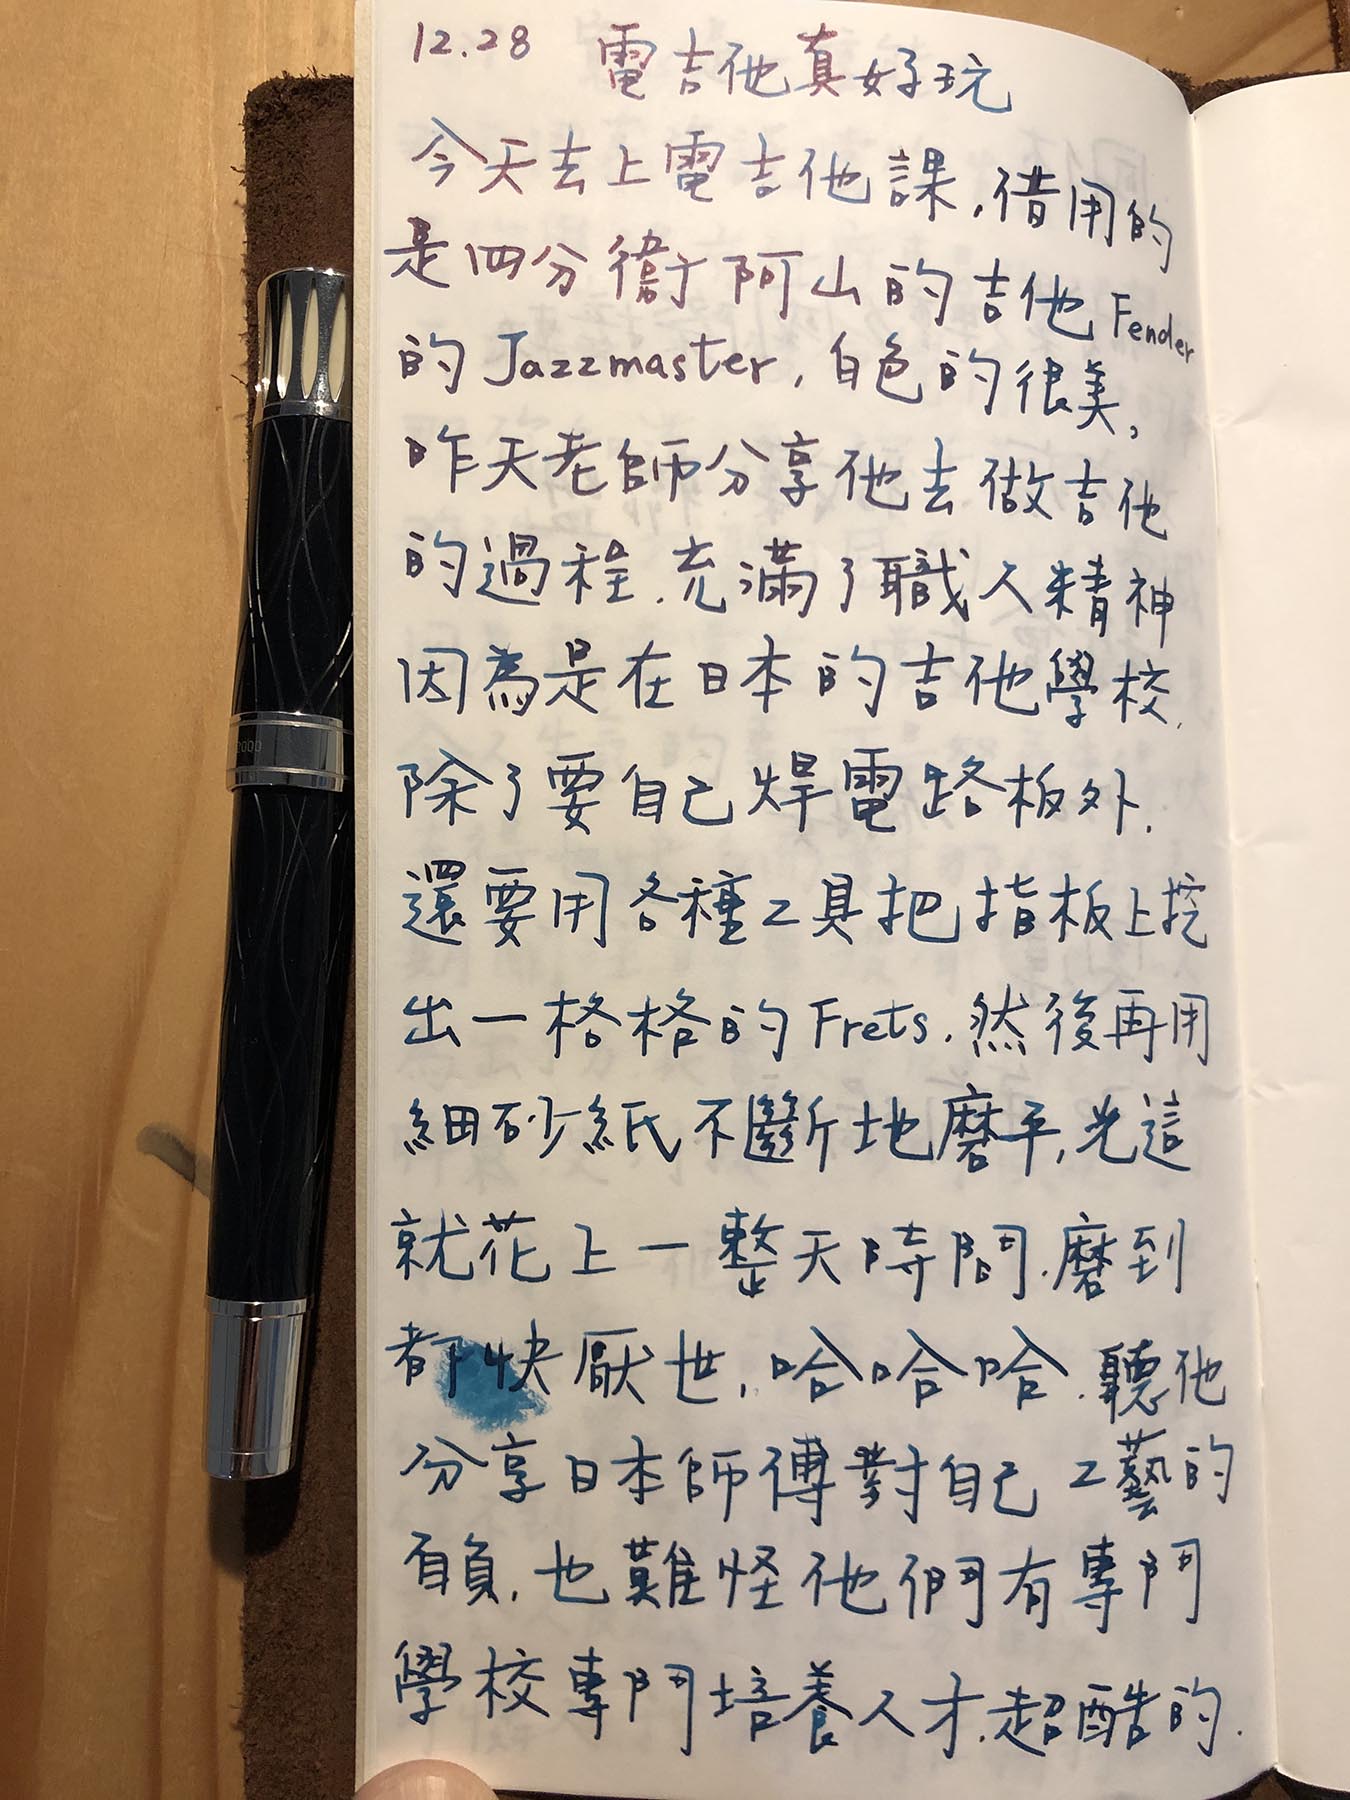 12.28 電吉他真好玩
今天去上電吉他課,借用的
是四分衛阿山的吉他Fender
的Jazzmaster,白色的很美,
昨天老師分享他去做吉他
的過程.充滿了職人精神
因為是在日本的吉他學校.
除了要自己焊電路板外.
還要用各種工具把指板上挖
出一格格的Frets.然後再用
細砂紙不斷地磨平,光這
就花上一整天時間.磨到
都快厭世,哈哈哈.聽他
分享日本師傅對自己工藝的
自負.也難怪他們有專門
學校專門培養人才.超酷的.
2000